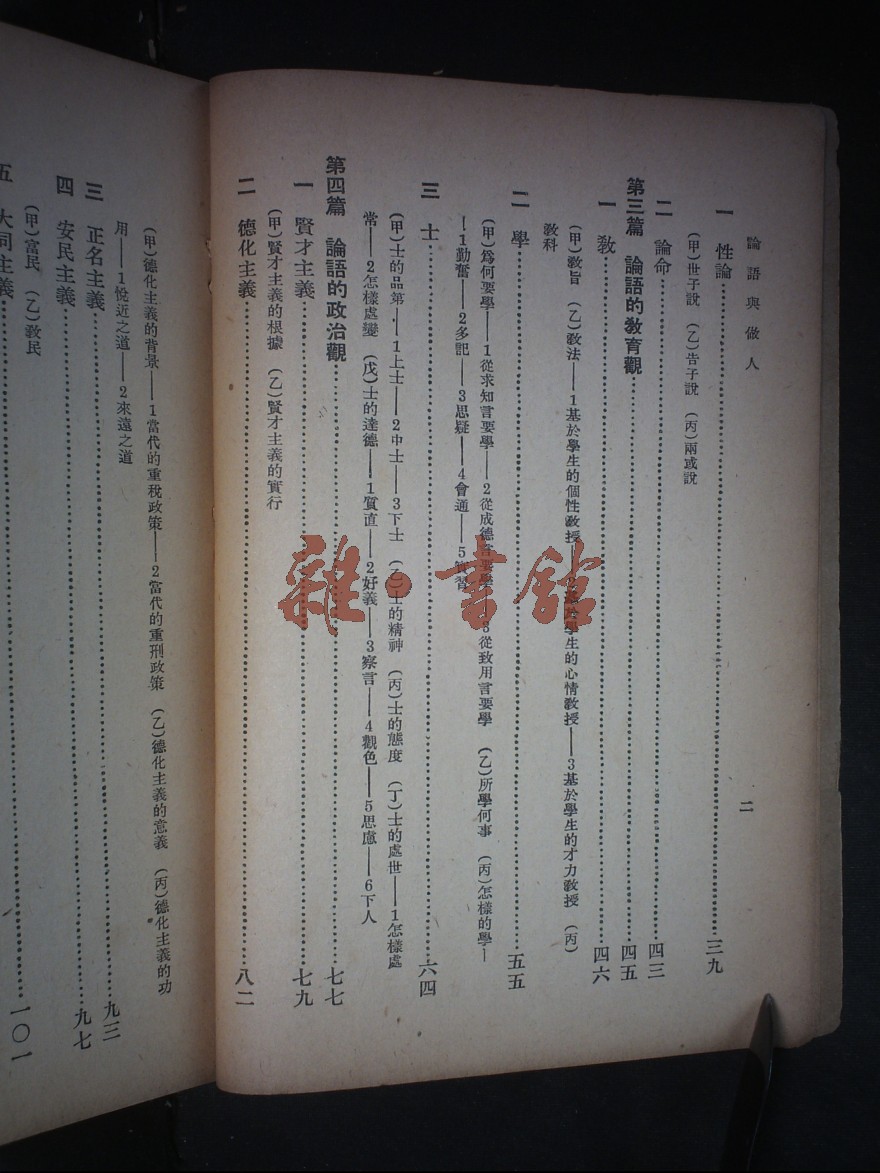 論語與做人
二
一 性論……三九
(甲)世子說 (乙)告子說 (丙)兩或說
二 論命……四三
第三篇 論語的教育觀……四五
一 教……四六
(甲)教旨 (乙)教法——1基於學生的個性教授——2基於學生的心情教授——3基於學生的才力教授 (丙)
教科
二 學……五五
(甲)爲何要學——1從求知言要學——2從成德言要學——3從致用言要學 (乙)所學何事 (丙)怎樣的學—
—1勤奮——2多記——3思疑——4會通——5實習
三 士……六四
(甲)士的品第——1上士——2中士——3下士 (乙)士的精神 (丙)士的態度 (丁)士的處世——1怎樣處
常——2怎樣處變 (戊)士的達德——1質直——2好義——3察言——4觀色——5思慮——6下人
第四篇 論語的政治觀……七七
一 賢才主義……七九
(甲)賢才主義的根據 (乙)賢才主義的實行
二 德化主義……八二
(甲)德化主義的背景——1當代的重稅政策——2當代的重刑政策 (乙)德化主義的意義 (丙)德化主義的功
用——1悅近之道——2來遠之道
三 正名主義……九三
四 安民主義……九七
(甲)富民 (乙)教民
五 大同主義……一〇一
雜·書館